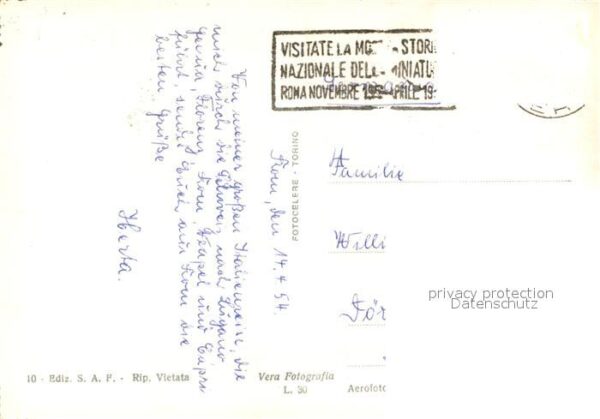 VISITATE LA MOSTRA STORI
NAZIONALE DELLA MINIATU
ROMA NOVEMBRE 1953-APRILE 19
Rom, den 14.4.54.
Von meiner großen Italienreise, die
mich durch die Schweiz nach Lugano
Genua, Florenz, Rom, Neapel und Capri
führt, sendet Euch aus Rom die
besten Grüße
Herta.
FOTOCELERE - TORINO
Familie
Willi
Dör
privacy protection
Datenschutz
10 - Ediz. S. A. F. - Rip. Vietata
Vera Fotografia
L. 30
Aerofoto